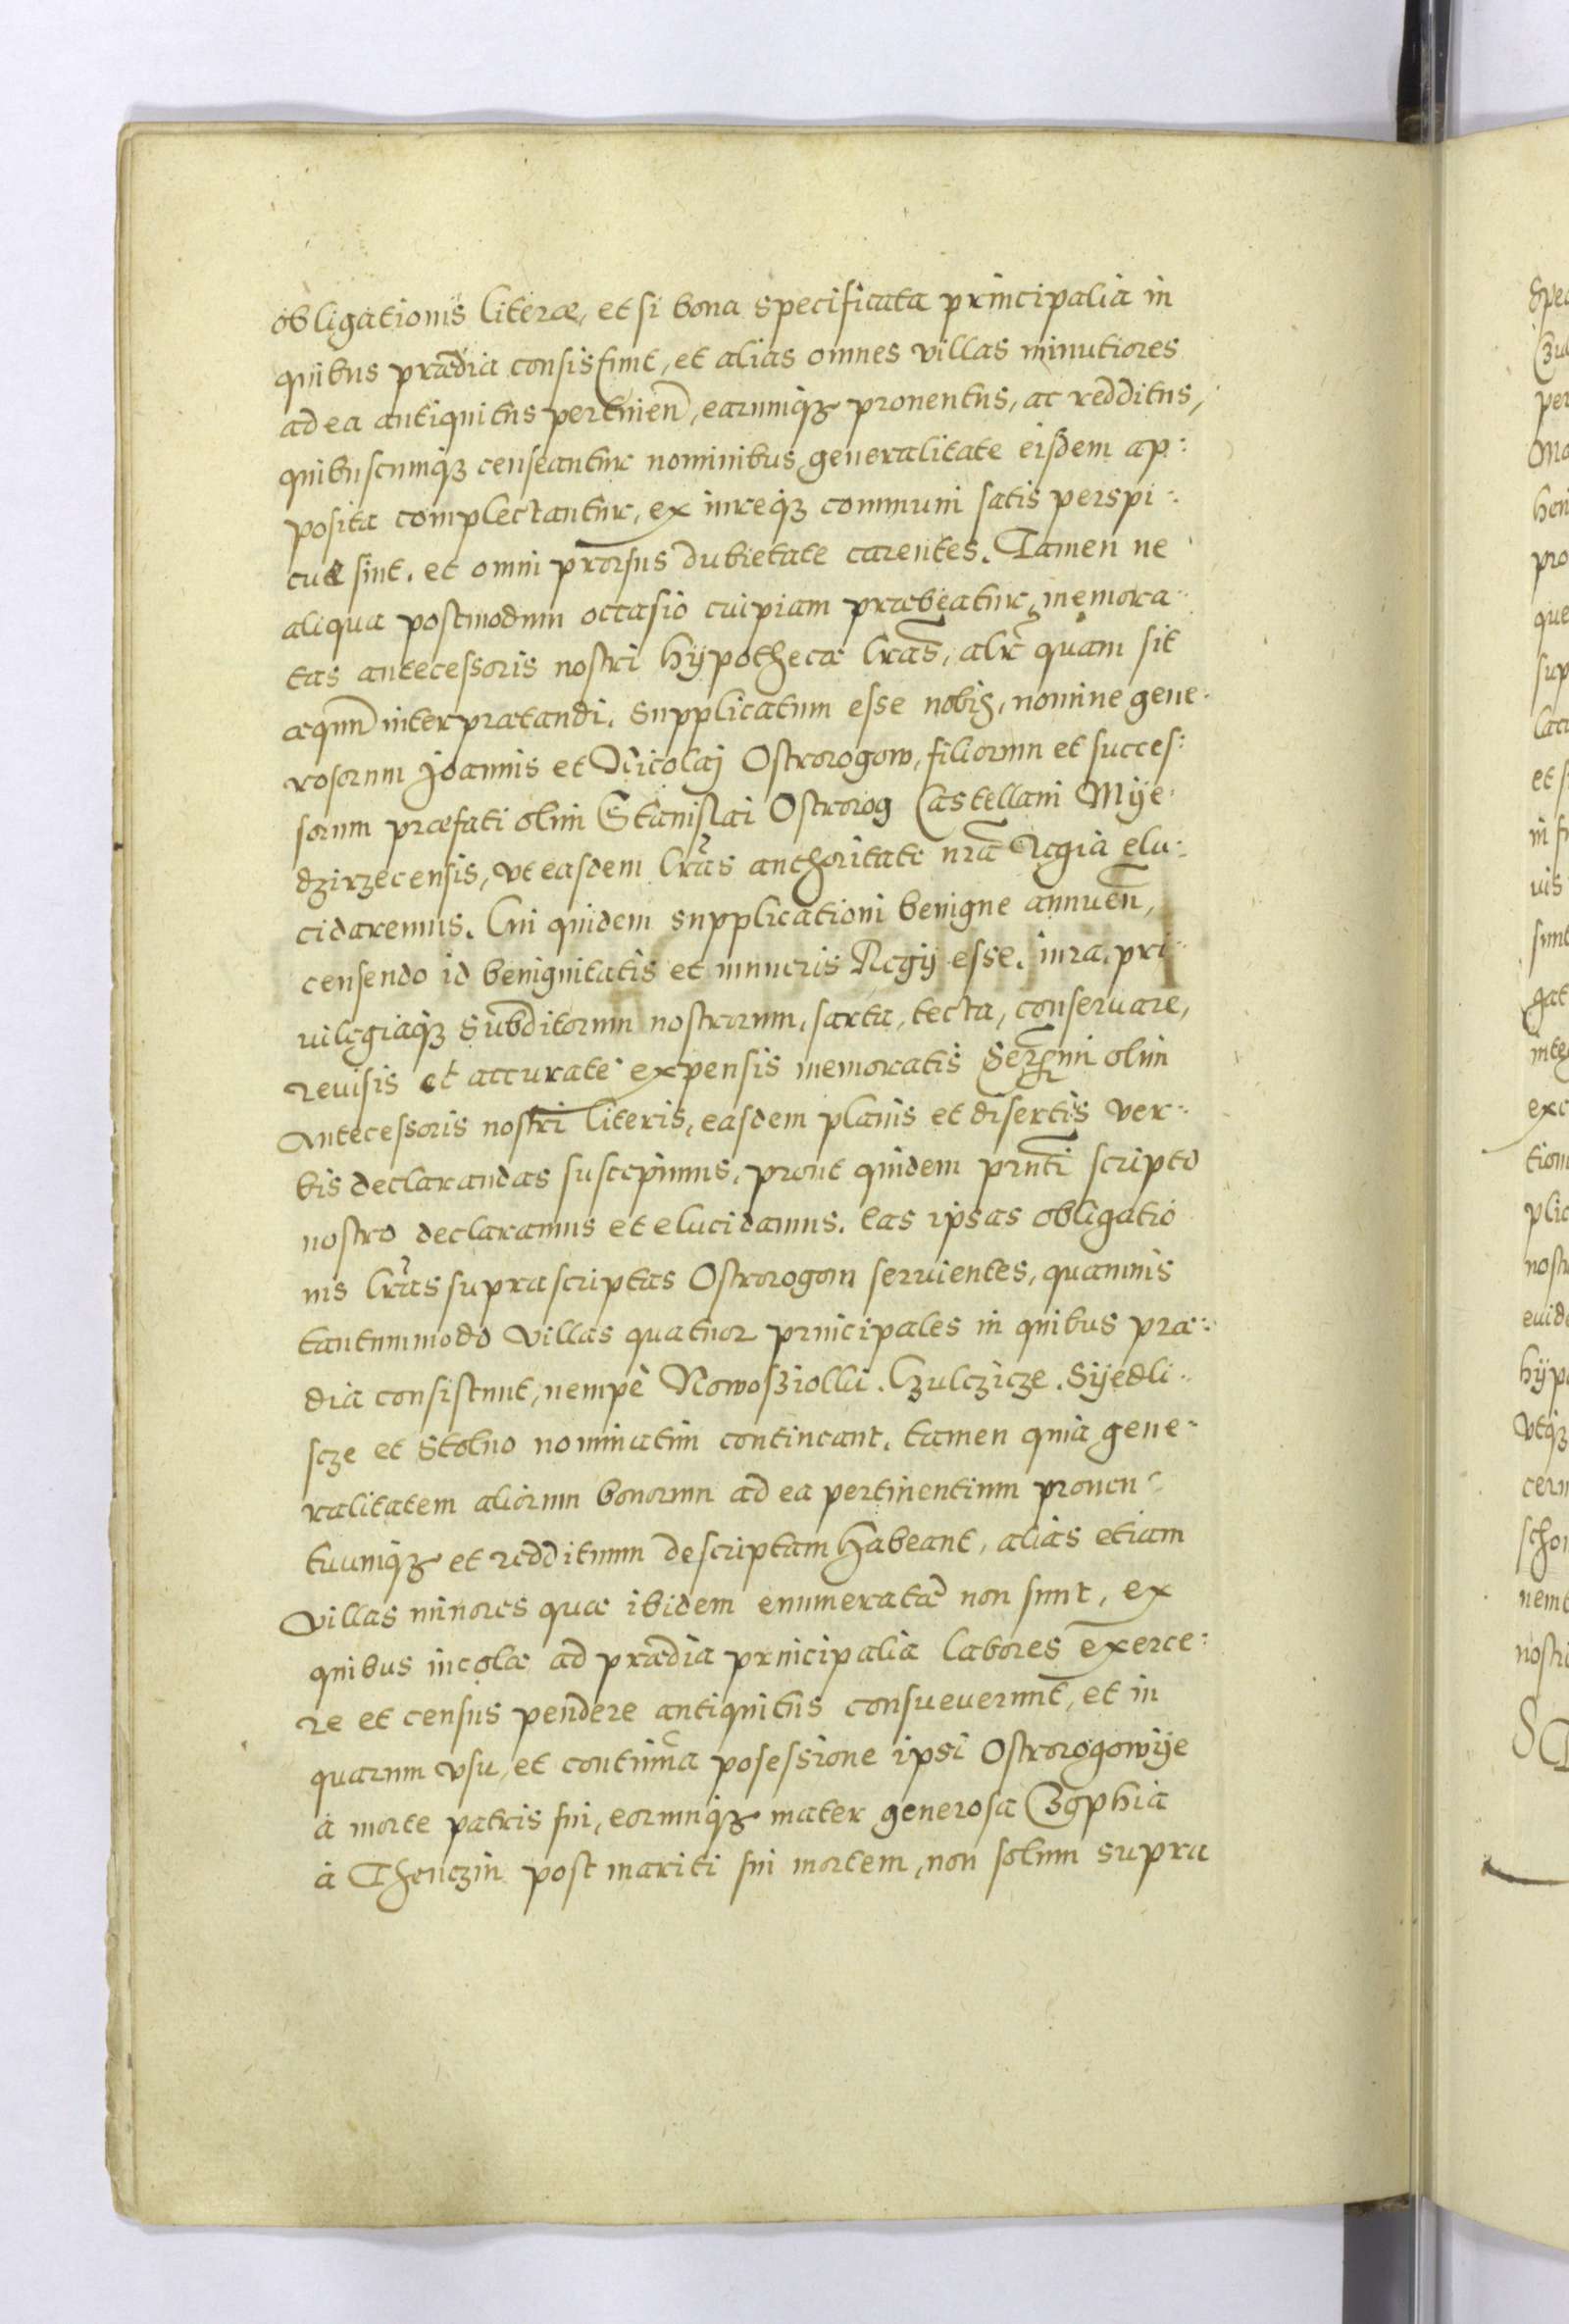 obligationis literæ, et si bona specificata principalia in
quibus prædia consistunt, et alias omnes villas minutiores
ad ea antiquitus pertinen̄, earumqꜣ prouentus, ac redditus,
quibuscumqꜣ censeantur nominibus generalitate eisdem ap:
posita complectantur, ex iureqꜣ communi satis perspi:
cuæ sint. et omni prorsus dubietate carentes. Tamen ne
aliqua postmodum occasio cuipiam præbeatur, memora:
tas antecessoris nostri hÿpothecæ l̃ras, al̃r quam sit
æquū interpretandi. Supplicatum esse nobis, nomine gene:
rosorum Joannis et Nicolaj Ostrorogow, filiorum et succes:
sorum præfati olim Stanislai Ostrorog Castellani Mÿe:
dzirzecensis, vt easdem l̃ras authoritate nr̃a Regia elu:
cidaremus. Cui quidem supplicationi benigne annuen̄,
censendo id benignitatis et muneris Regij esse. iura. pri:
uilegiaqꜣ subditorum nostrorum, sarta, tecta, conseruare,
reuisis et accurate expensis memoratis Ser̃mi olim
Antecessoris nostri literis, easdem planis et disertis ver:
bis declarandas suscepimus, prout quidem pr̃nti scripto
nostro declaramus et elucidamus. Eas ipsas obligatio
nis l̃ras suprascriptas Ostrorogom seruientes, quamuis
tantummodo villas quatuor principales in quibus præ:
dia consistunt, nempè Nowosziolki. Czulczicze. Sÿedli:
scze et Stolno nominatim contineant. tamen quia gene:
ralitatem aliorum bonorum ad ea pertinentium prouen:
tuumqꜣ et reddituum descriptam habeant, alias etiam
villas minores quæ ibidem enumeratæ non sunt, ex
quibus incolæ ad prædia principalia labores exerce:
re et census pendere antiquitus consueuerunt, et in
quarum vsu, et continua posessione ipsi Ostrorogowÿe
à morte patris sui, eorumqꜣ mater generosa Zophia
à Thenczin post mariti sui mortem, non solum supra